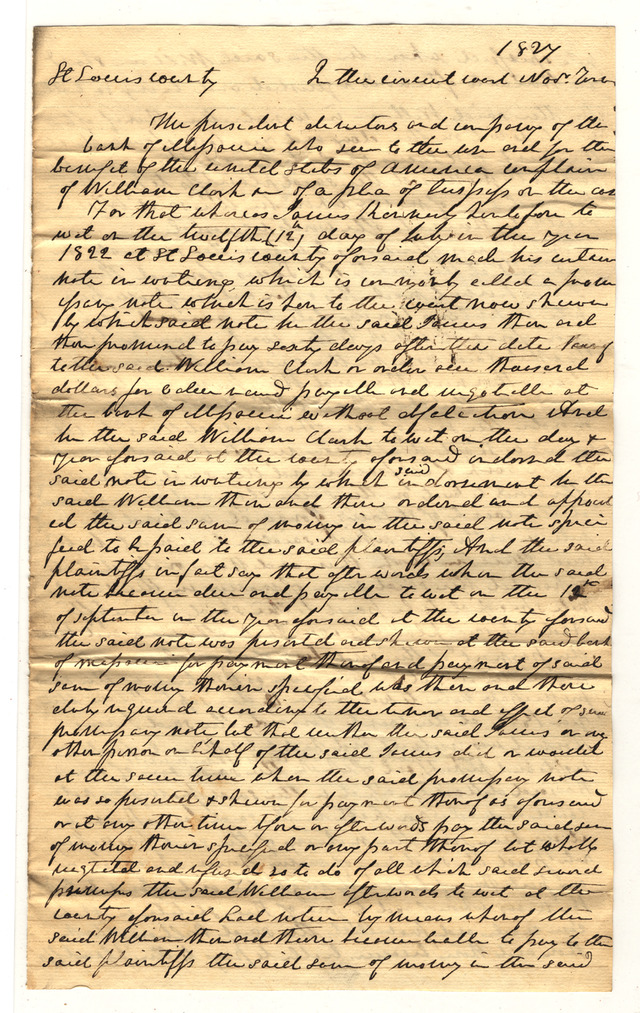 1827
St Louis county In the circuit court Nov. Term
The president directors and company of the
bank of Missouri who sue to the use and for the
benefit of the united states of America complain
of William Clark on of a plea of trespass on the case
For that whereas James Kennerly heretofore to
wit on the twelfth (12th) day of July in the year
1822 at St Louis county aforesaid made his certain
note in writing which is commonly called a prom
issary note which is here to the court now shewn
by which said note he the said James then and
there promised to pay sixty days after the date thereof
to the said William Clark or order one thousand
dollars for value received payable and negotiable at
the bank of Missouri without defalcation And
he the said William Clark to wit on the day &
year aforesaid at the county aforesaid indorsed the
said note in writing by which said indorsement he the
said William then and there ordered and appoint
ed the said sum of money in the said note speci
fied to be paid to the said plaintiffs, And the said
plaintiffs in fact say that after words when the said
note became due and payable to wit on the
of september in the year aforesaid at the county aforesaid
the said note was presented and shewn at the said bank
of missouri for payment thereof and payment of said
sum of money therein specified was then and there
duly required according to the tenor and effect of said
promissary note but that neither the said James or any
other person on behalf of the said James did or would
at the same time when the said promissary note
was so presented & shewn for payment thereof as aforesaid
or at any other time before or afterwards pay the said sum
of money therein specified or any part thereof but wholly
neglected and refused so to do of all which said several
premises the said William afterwords to wit at the
county aforesaid had notice by means whereof the
said William then and there became liable to pay to the
said plaintiffs the said sum of money in the said